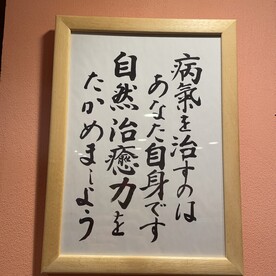 病氣を治すのは
あなた自身です
自然治癒力を
たかめましよう